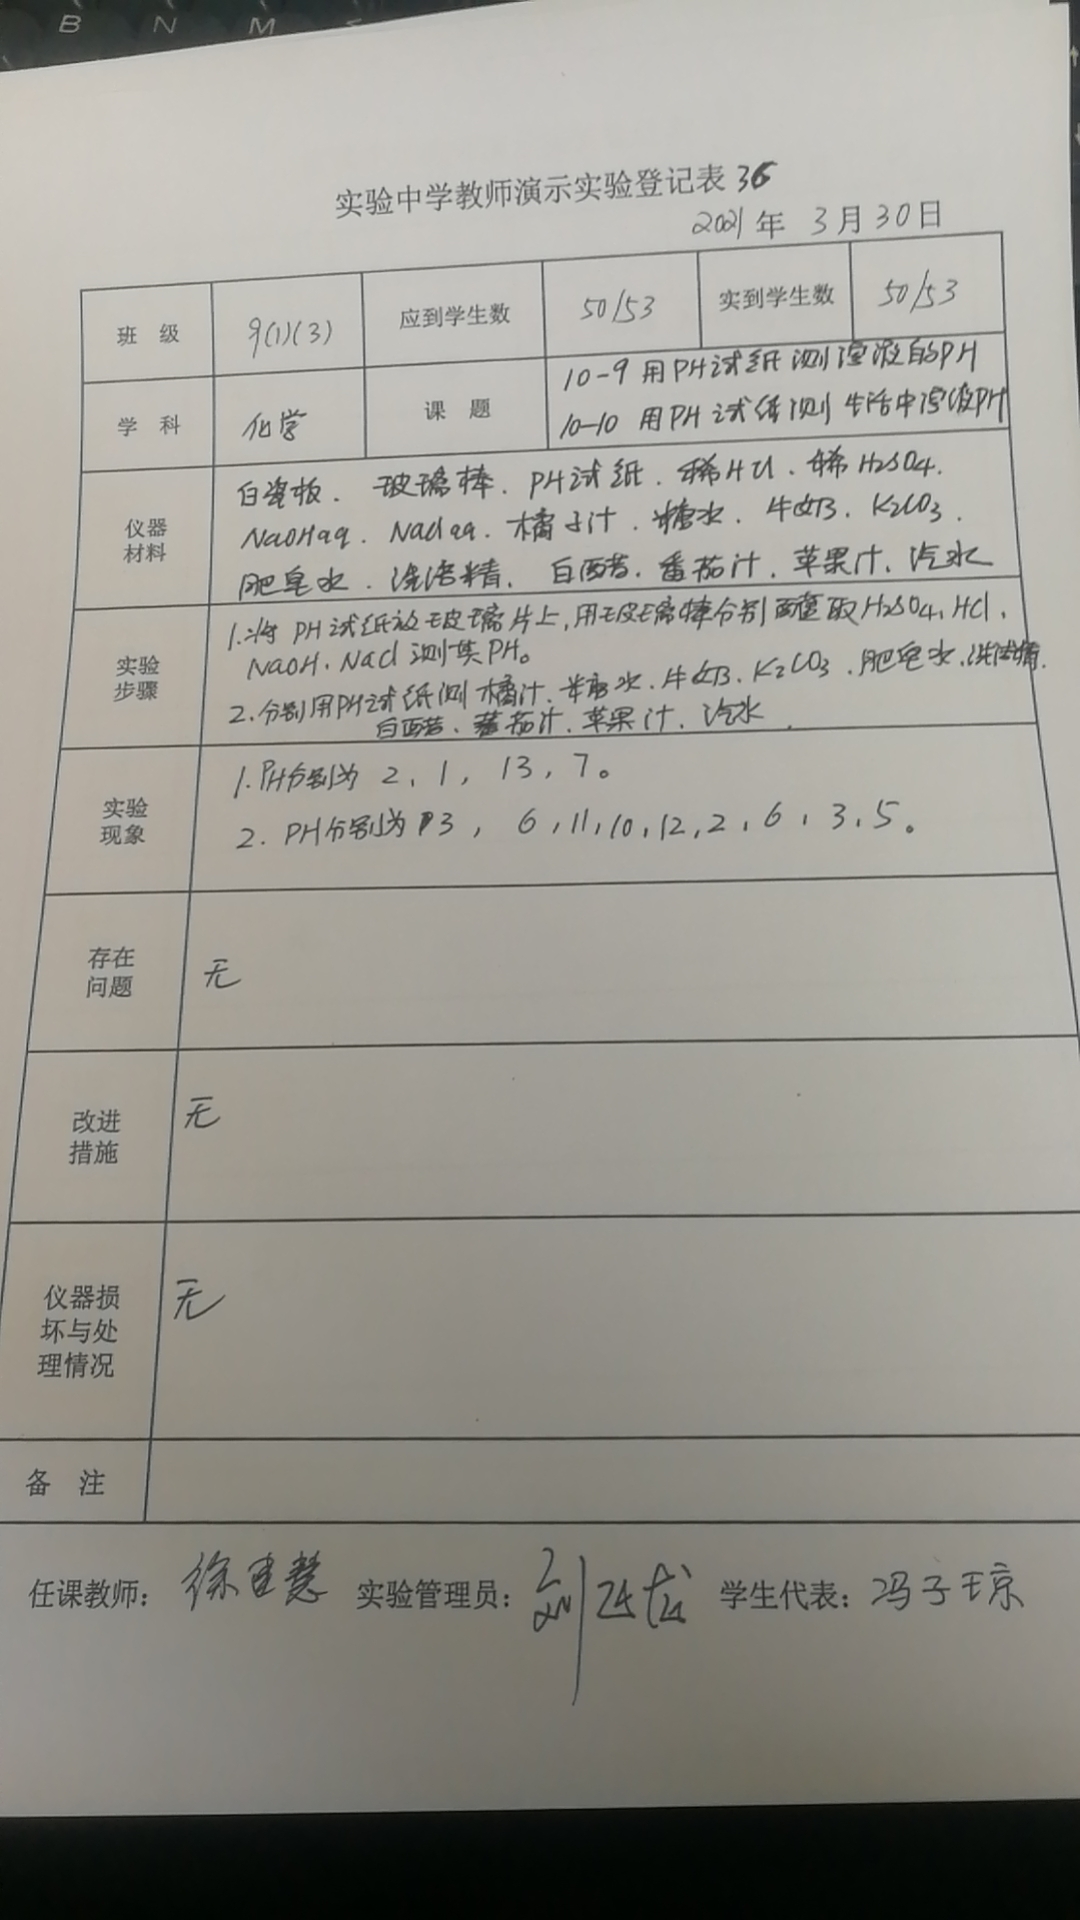 B N M
实验中学教师演示实验登记表 36
2021年 3月30日
班 级 9(1)(3) 应到学生数 50/53 实到学生数 50/53
学 科 化学 课 题 10-9 用PH试纸测溶液的PH
10-10 用PH试纸测生活中溶液PH
仪器材料 白瓷板、玻璃棒、PH试纸、稀HCl、稀H2SO4、
NaOHaq、NaClaq、橘子汁、糖水、牛奶、K2CO3、
肥皂水、洗洁精、白醋、番茄汁、苹果汁、汽水
实验步骤 1.将PH试纸放玻璃片上,用玻璃棒分别蘸取H2SO4、HCl、
NaOH、NaCl测其PH。
2.分别用PH试纸测橘汁、糖水、牛奶、K2CO3、肥皂水、洗洁精、
白醋、番茄汁、苹果汁、汽水
实验现象 1.PH分别为 2、1, 13,7。
2. PH分别为 3, 6,11,10,12,2,6,3,5。
存在问题 无
改进措施 无
仪器损坏与处理情况 无
备 注
任课教师: 徐 慧 实验管理员: 刘 龙 学生代表: 冯子琼